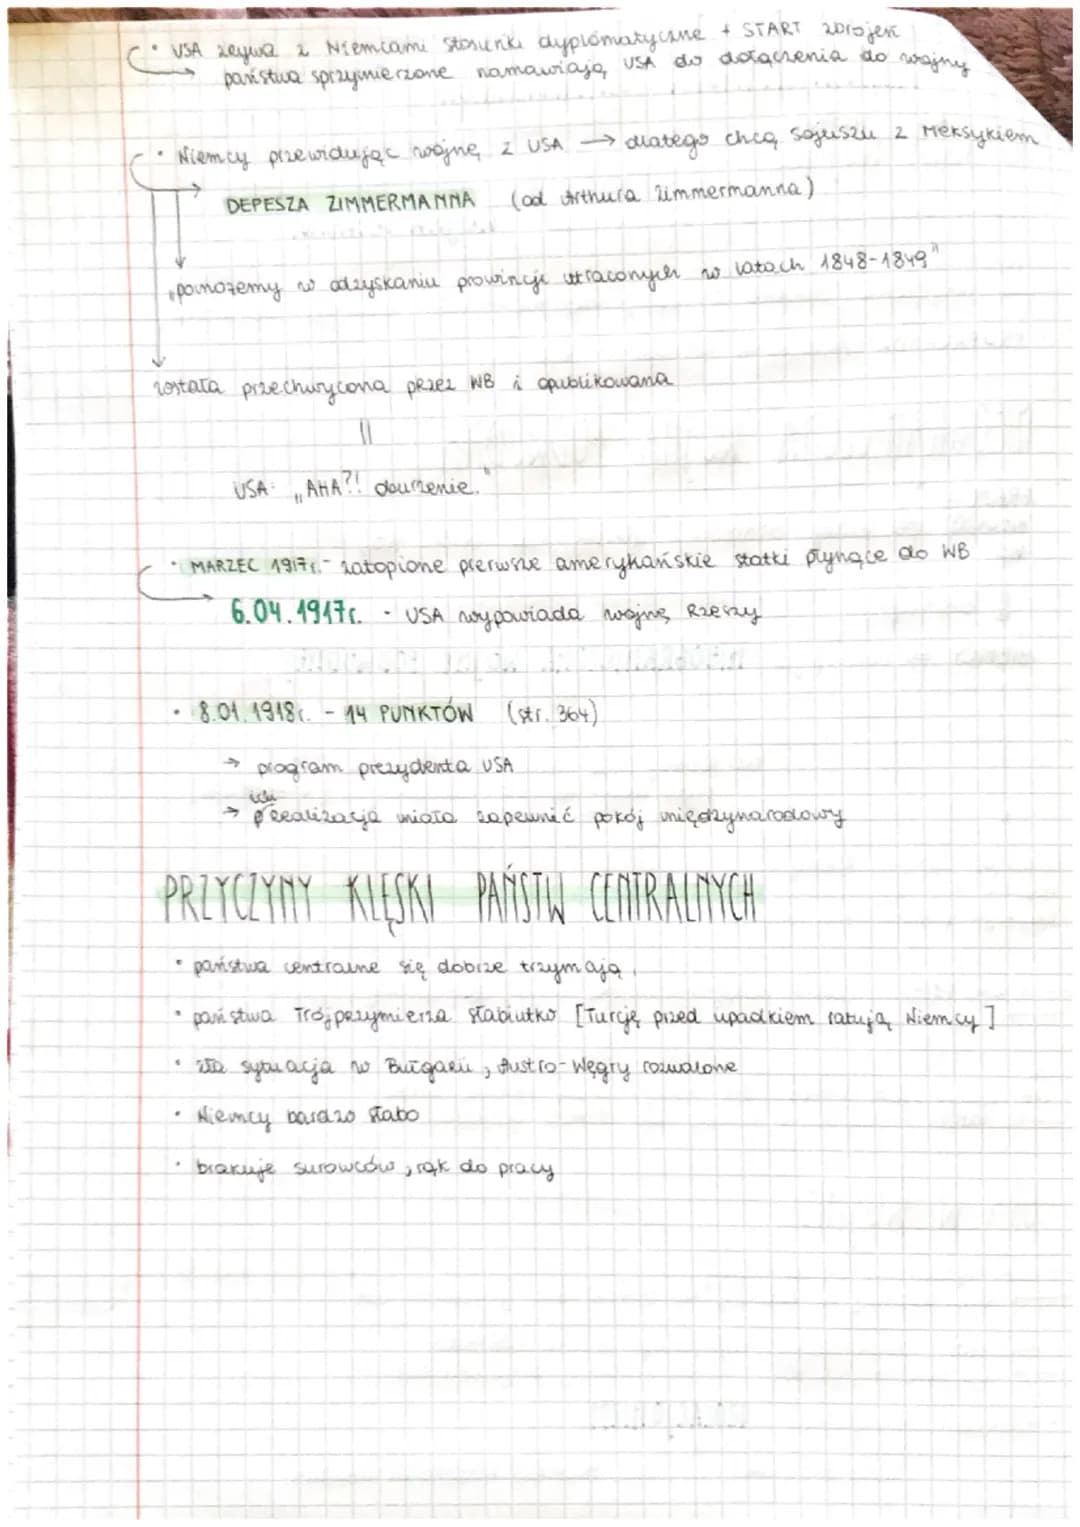 • USA zrywa z Niemcami stosunki dyplomatyczne + START zbrojeń
państwa sprzymierzone namawiają USA do dołączenia do wojny
• Niemcy przewidując wojnę z USA → dlatego chcą sojuszu z Meksykiem
DEPESZA ZIMMERMANNA (od Arthura Zimmermanna)
„pomożemy w odzyskaniu prowincji utraconych w latach 1848-1849"
została przechwycona przez WB i opublikowana
||
USA: „AHA?! oburzenie."
• MARZEC 1917r. - zatopione pierwsze amerykańskie statki płynące do WB
6.04.1917r. - USA wypowiada wojnę Rzeszy
• 8.01.1918r. - 14 PUNKTÓW (str. 364)
→ program prezydenta USA
ich
→ realizacja miała zapewnić pokój międzynarodowy
PRZYCZYNY KLĘSKI PAŃSTW CENTRALNYCH
• państwa centralne się dobrze trzymają
• państwa Trójprzymierza słabiutko [Turcję przed upadkiem ratują Niemcy]
• zła sytuacja w Bułgarii, Austro-Węgry rozwalone
• Niemcy bardzo słabo
• brakuje surowców, rąk do pracy